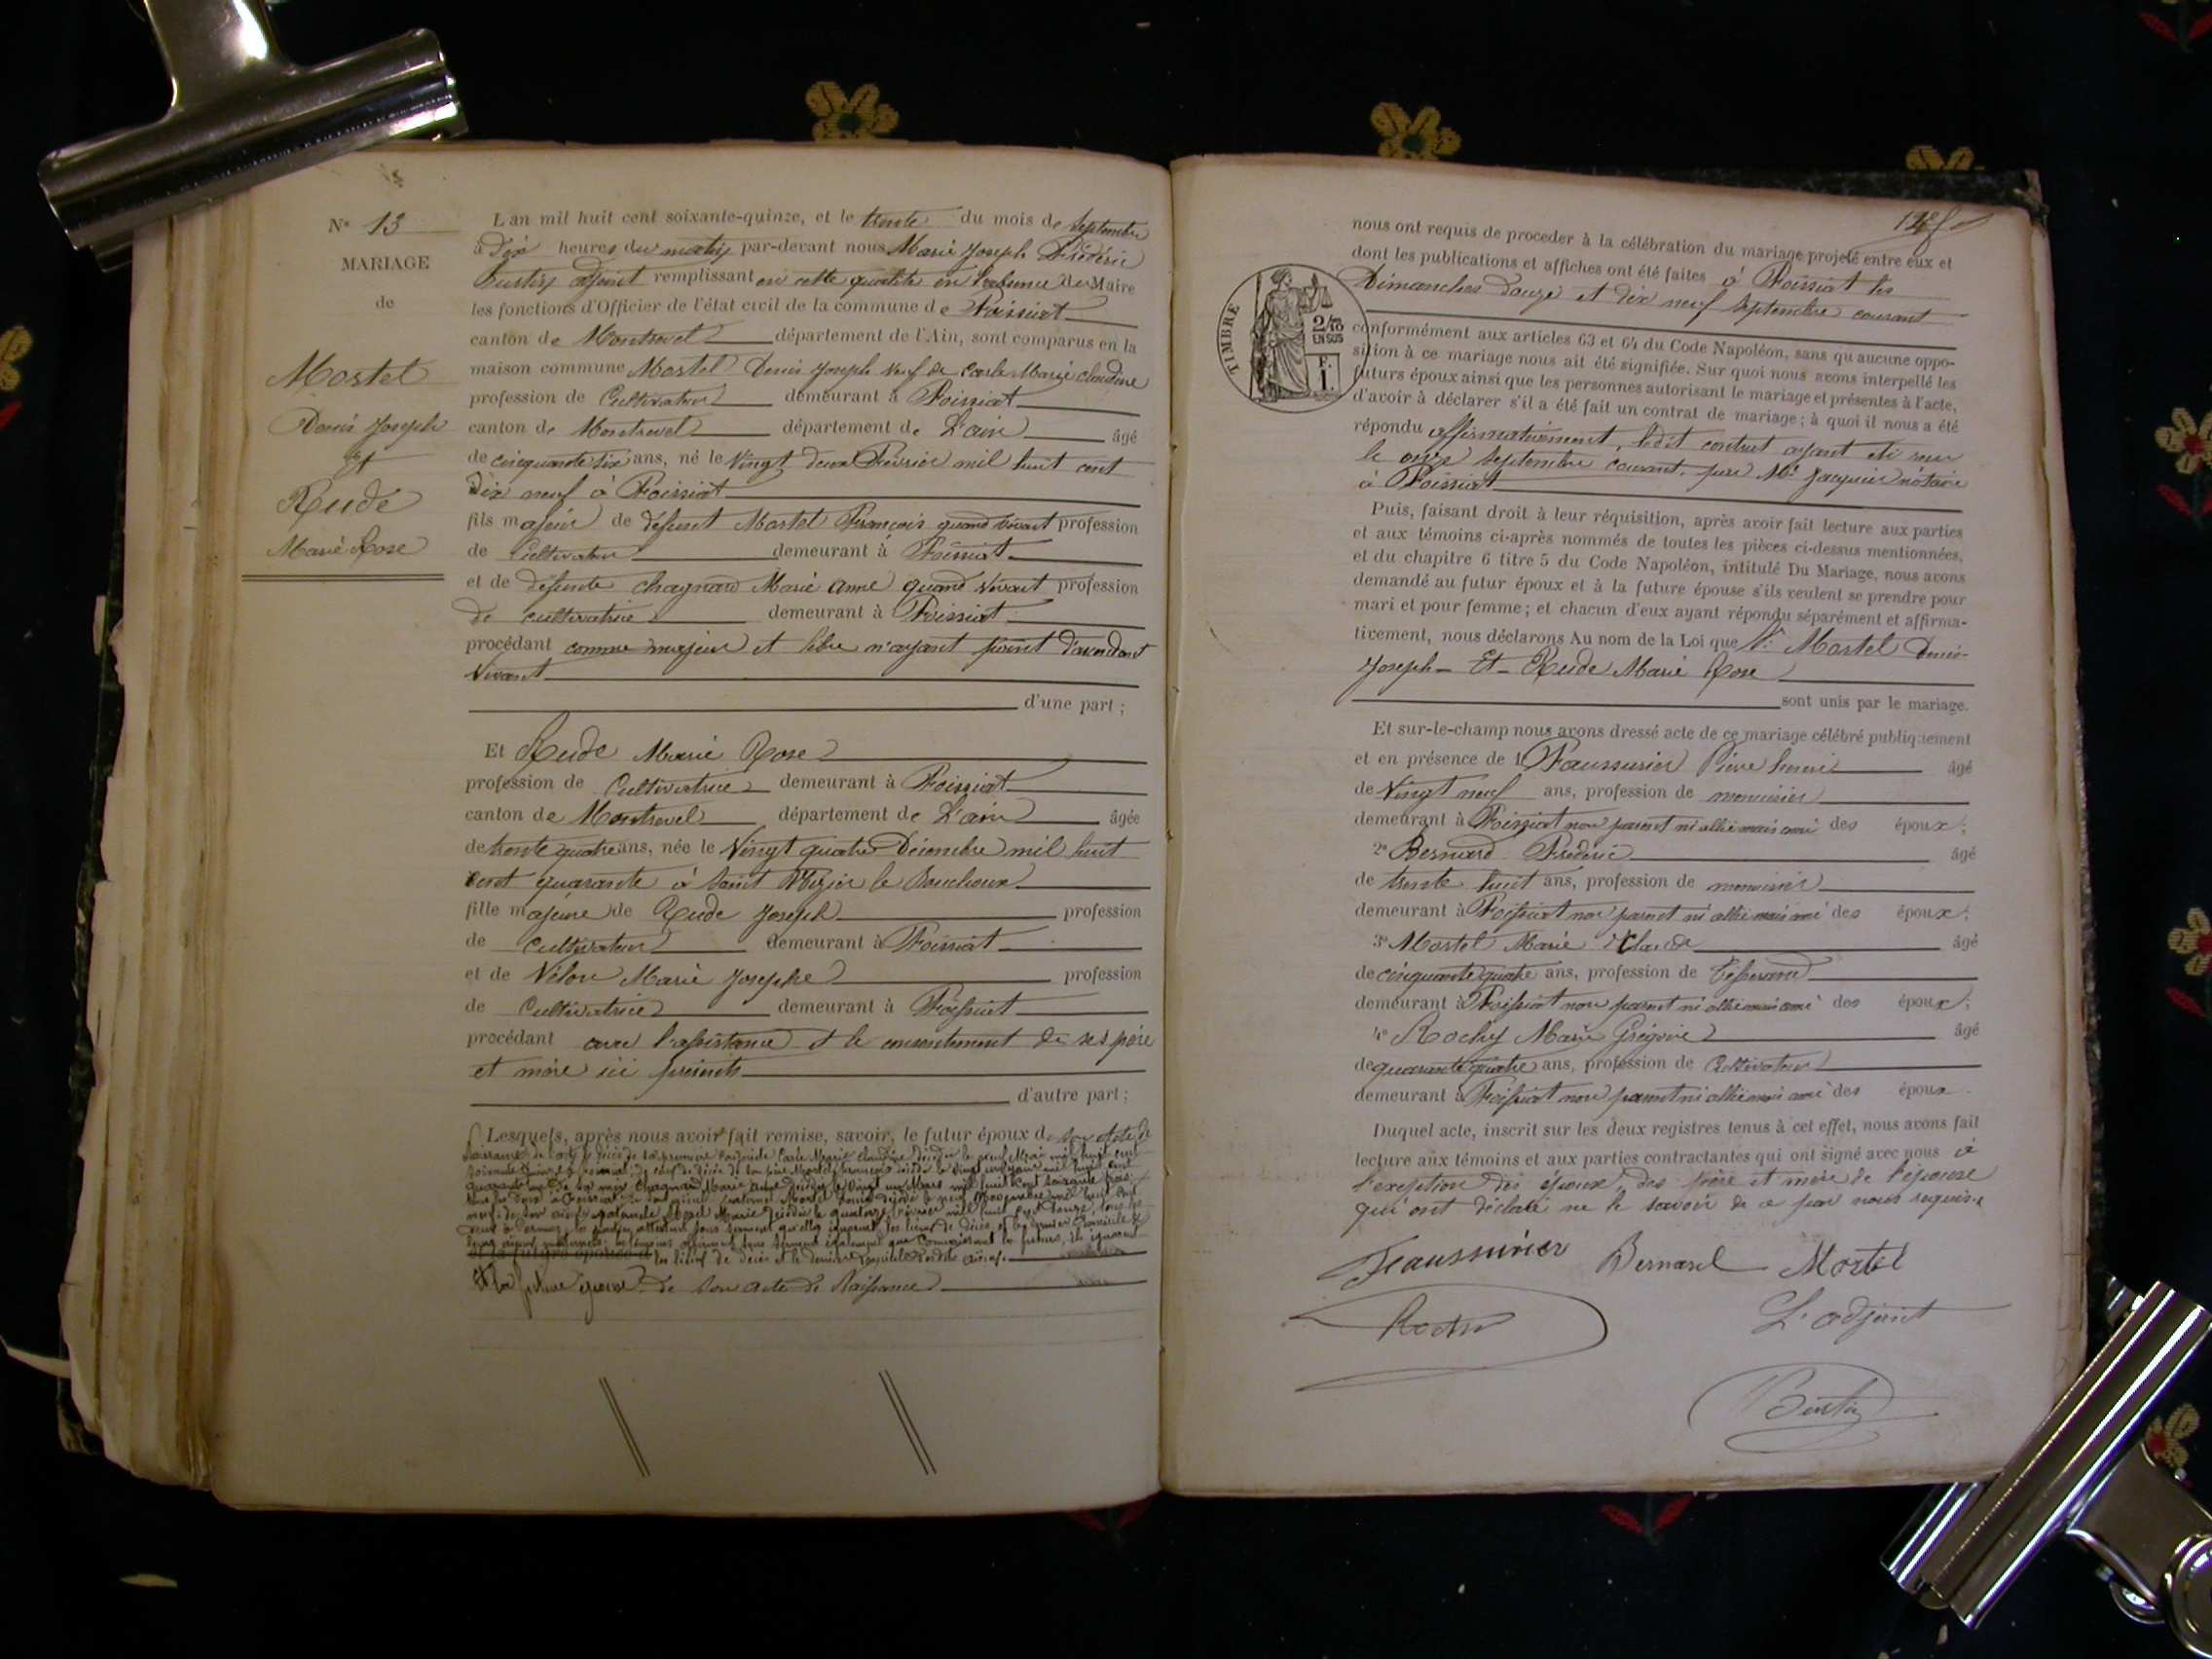 N° 13
MARIAGE
de
Mostel
Denis Joseph
Et
Rude
Marie Rose
L'an mil huit cent soixante-quinze, et le trente du mois de Septembre
à Dix heures du matin par-devant nous Marie Joseph Frédéric
adjoint remplissant en cette qualité en l'absence du Maire
les fonctions d'Officier de l'état civil de la commune de Foissiat
canton de Montrevel département de l'Ain, sont comparus en la
maison commune Mostel Denis Joseph Veuf de Carle Marie Claudine
profession de Cultivateur demeurant à Foissiat
canton de Montrevel département de L'ain âgé
de cinquante six ans, né le Vingt deux Février mil huit cent
Dix neuf à Foissiat
fils majeur de défunt Mostel François quand vivant profession
de Cultivateur demeurant à Foissiat
et de défunte Chagnard Marie Anne quand vivant profession
de cultivatrice demeurant à Foissiat
procédant comme majeur et libre n'ayant point d'ascendant
Vivant
d'une part ;
Et Rude Marie Rose
profession de Cultivatrice demeurant à Foissiat
canton de Montrevel département de L'ain âgée
de trente quatre ans, née le Vingt quatre Décembre mil huit
cent quarante à Saint Nizier le Bouchoux
fille majeure de Rude Joseph profession
de cultivateur demeurant à Foissiat
et de Vélon Marie Josephe profession
de Cultivatrice demeurant à Foissiat
procédant avec l'assistance et le consentement de ses père
et mère ici présents
d'autre part ;
Lesquels, après nous avoir fait remise, savoir, le futur époux de son acte de
Naissance de l'acte de décès de sa première Carle Marie Claudine décédée le neuf Mai mil huit cent
soixante quinze à Foissiat, de celui de décès de son père Mostel François décédé le vingt un mil huit cent
de sa mère Chagnard Marie Anne décédée le vingt un Mars mil huit cent soixante trois
les lieux de décès et le dernier domicile desdits aïeux.
Et la future épouse de son acte de Naissance
128
nous ont requis de procéder à la célébration du mariage projeté entre eux et
dont les publications et affiches ont été faites à Foissiat les
Dimanches douze et dix neuf Septembre courant
TIMBRE
2/10
EN SUS
F.
1.
conformément aux articles 63 et 64 du Code Napoléon, sans qu'aucune oppo-
sition à ce mariage nous ait été signifiée. Sur quoi nous avons interpellé les
futurs époux ainsi que les personnes autorisant le mariage et présentes à l'acte,
d'avoir à déclarer s'il a été fait un contrat de mariage ; à quoi il nous a été
répondu affirmativement, ledit contrat ayant été reçu
le onze Septembre courant par Me Jacquier notaire
à Foissiat
Puis, faisant droit à leur réquisition, après avoir fait lecture aux parties
et aux témoins ci-après nommés de toutes les pièces ci-dessus mentionnées,
et du chapitre 6 titre 5 du Code Napoléon, intitulé Du Mariage, nous avons
demandé au futur époux et à la future épouse s'ils veulent se prendre pour
mari et pour femme ; et chacun d'eux ayant répondu séparément et affirma-
tivement, nous déclarons Au nom de la Loi que Mostel Denis
Joseph Et Rude Marie Rose
sont unis par le mariage.
Et sur-le-champ nous avons dressé acte de ce mariage célébré publiquement
et en présence de 1° Faussurier Pierre henri âgé
de Vingt neuf ans, profession de menuisier
demeurant à Foissiat non parent ni allié mais ami des époux ;
2° Bernard Frédéric âgé
de trente huit ans, profession de menuisier
demeurant à Foissiat non parent ni allié mais ami des époux ;
3° Mostel Marie Claude âgé
de cinquante quatre ans, profession de Tisserand
demeurant à Foissiat non parent ni allié mais ami des époux ;
4° Rochy Marie Grégoire âgé
de quarante quatre ans, profession de Cultivateur
demeurant à Foissiat non parent ni allié mais ami des époux.
Duquel acte, inscrit sur les deux registres tenus à cet effet, nous avons fait
lecture aux témoins et aux parties contractantes qui ont signé avec nous à
l'exception des époux, des père et mère de l'épouse
qui ont déclaré ne le savoir de ce par nous requis.
Feaussurier Bernard Mostel
L'adjoint